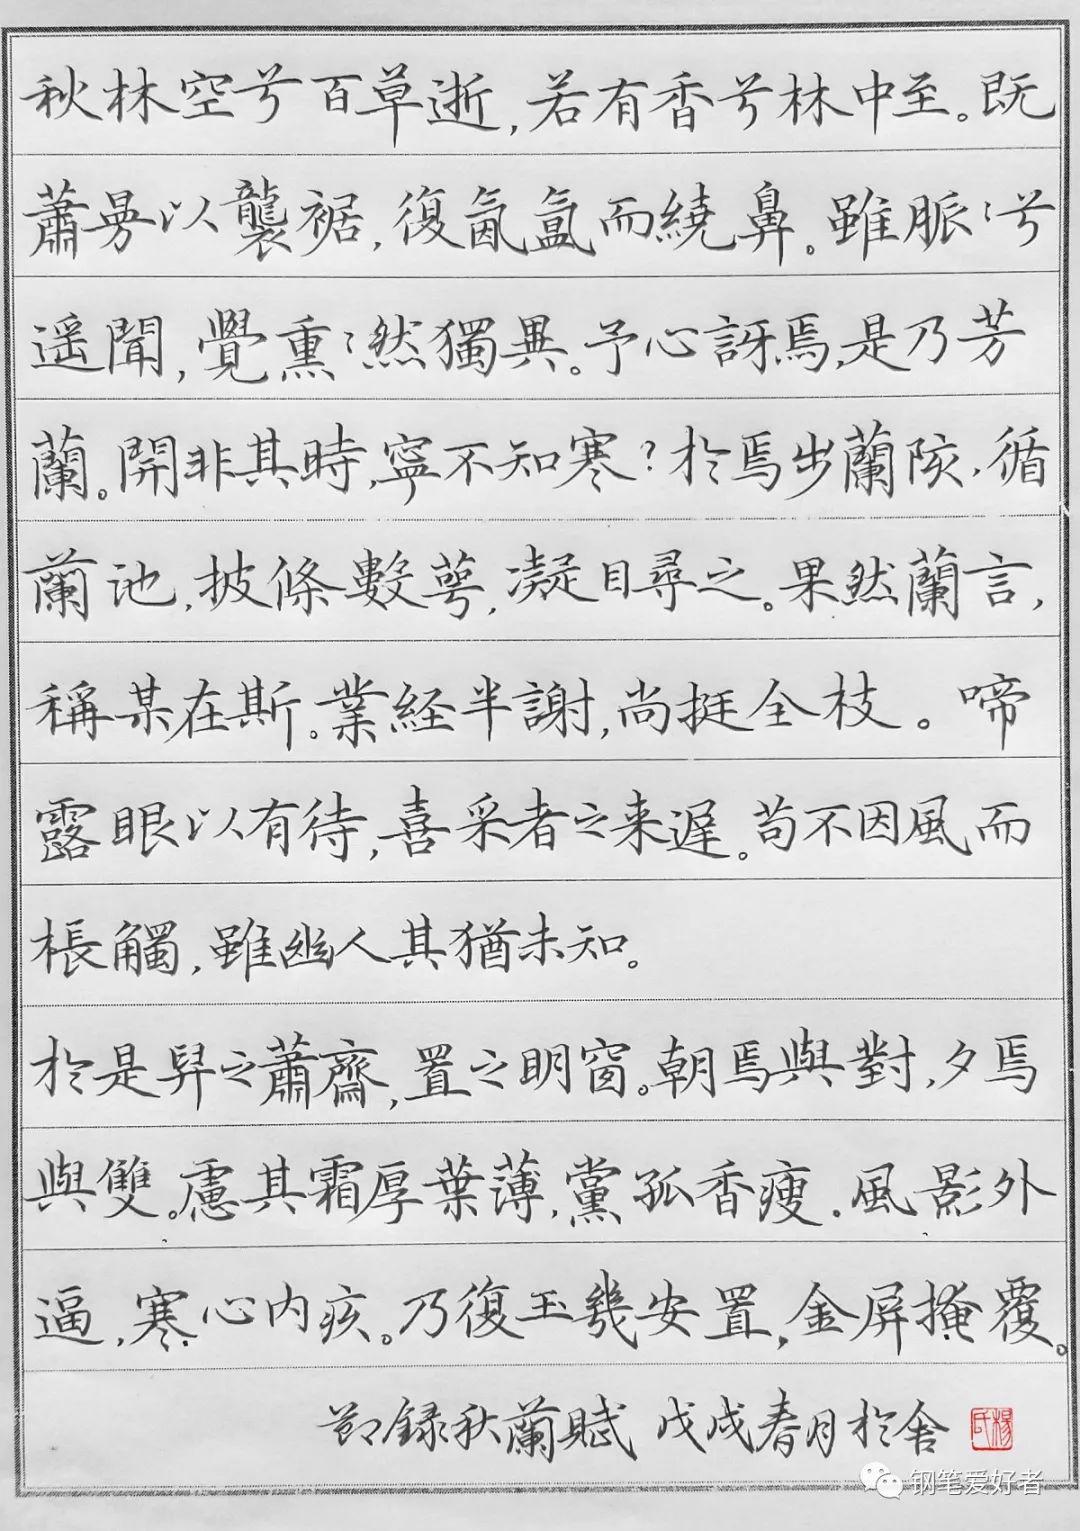 秋林空兮百草逝,若有香兮林中至。既
蕭曼以襲裾,復氤氳而繞鼻。雖脈〻兮
遥聞,覺熏〻然獨異。予心訝焉,是乃芳
蘭。開非其時,寧不知寒?於焉步蘭陔,循
蘭池,披條數萼,凝目尋之。果然蘭言,
稱某在斯。業経半謝,尚挺全枝。啼
露眼以有待,喜采者之来遲。苟不因風而
棖觸,雖幽人其猶未知。
於是舁之蕭齋,置之明窗。朝焉與對,夕焉
與雙。慮其霜厚葉薄,黨孤香瘦.風影外
逼,寒心内疚。乃復玉幾安置,金屏掩覆。
節録秋蘭賦 戊戌春月於舍
楊氏
钢笔爱好者